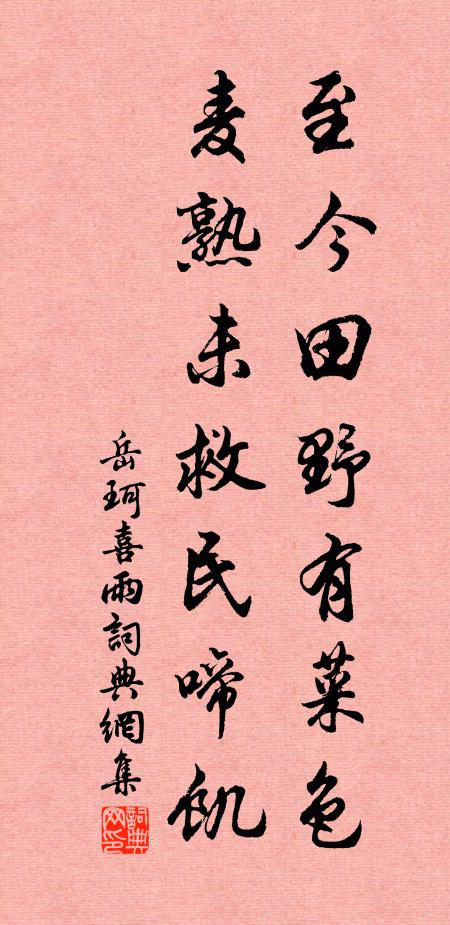 至今田野有菜色
麦熟未救民啼飢
岳珂喜雨詞典網集
詞典网印